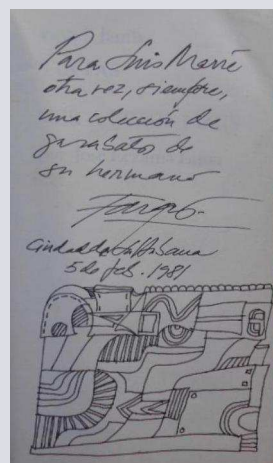 Para Luis Marré
otra vez, siempre,
una colección de
garabatos de
su hermano
Ciudad de La Habana
5 de feb. 1981